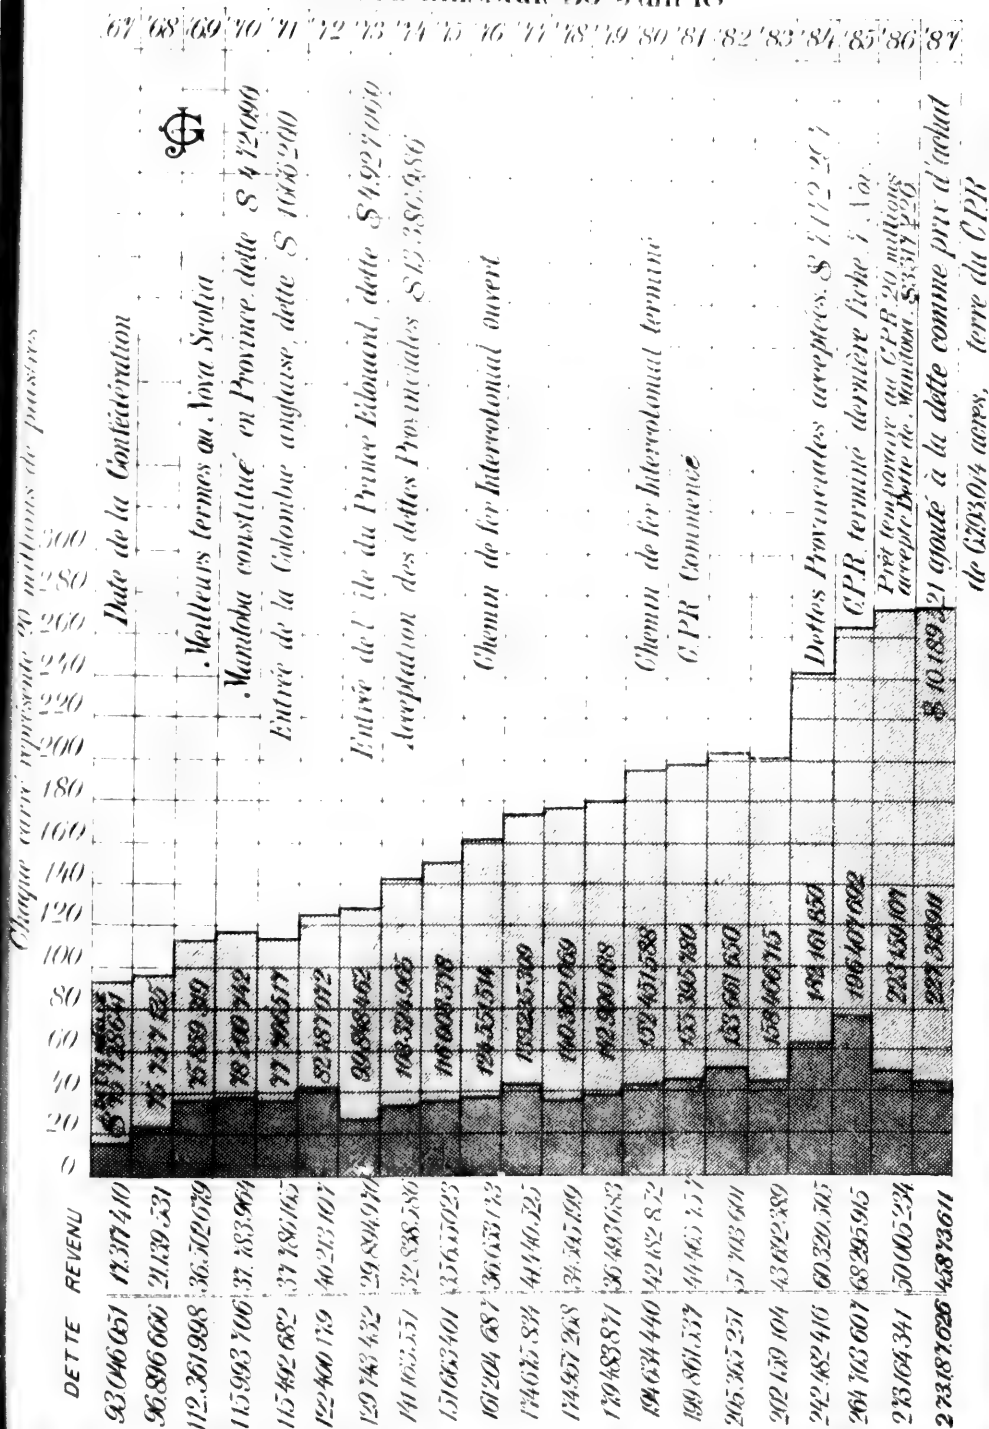 '67 '68 '69 '70 '71 '72 '73 '74 '75 '76 '77 '78 '79 '80 '81 '82 '83 '84 '85 '86 '87
Chaque carré représente 20 millions de piastres
300
280
260
240
220
200
180
160
140
120
100
80
60
40
20
0
Date de la Confédération
Meilleurs termes au Nova Scotia
Manitoba constitué en Province, dette $ 472.090
Entrée de la Colombie anglaise, dette $ 1666200
Entrée de l'île du Prince Edouard, dette $4.927.060
Acceptation des dettes Provinciales $13.386.986
Chemin de fer Intercolonial ouvert
Chemin de fer Intercolonial terminé
CPR Commencé
Dettes Provinciales acceptées. $
CPR terminé dernière fiche 7 Nov.
Prêt temporaire au CPR 20 millions
accepte Dette de Manitoba. $3.317.220
$ 10.189.521 ajouté à la dette comme prix d'achat
de 6.793.014 acres, terre du CPR
$ 75.728.641
75 757 135
75 859 319
78 209 742
77 706 517
82 187 072
99 848 462
108 324 965
116 008 378
124 551 514
133 235 309
140 362 069
142 990 188
152 451 588
155 395 780
153 661 650
158 466 715
182 161 850
196 407 692
223 159 107
227 313 911
DETTE REVENU
93.046.051 17.317.410
96.896.666 21.139.531
112.361.998 36.502.679
115.993.706 37.783.964
115.492.682 37.786.165
122.400.179 40.213.107
129.743.432 29.894.970
141.163.551 32.838.586
151.663.401 35.655.023
161.204.687 36.653.173
174.675.834 41.440.525
174.957.268 34.595.199
179.483.871 36.493.683
194.634.440 42.182.852
199.861.537 44.465.757
205.365.251 51.703.601
202.159.104 43.692.389
242.482.416 60.320.565
264.703.607 68.295.915
273.164.341 50.005.234
273.187.626 45.873.611